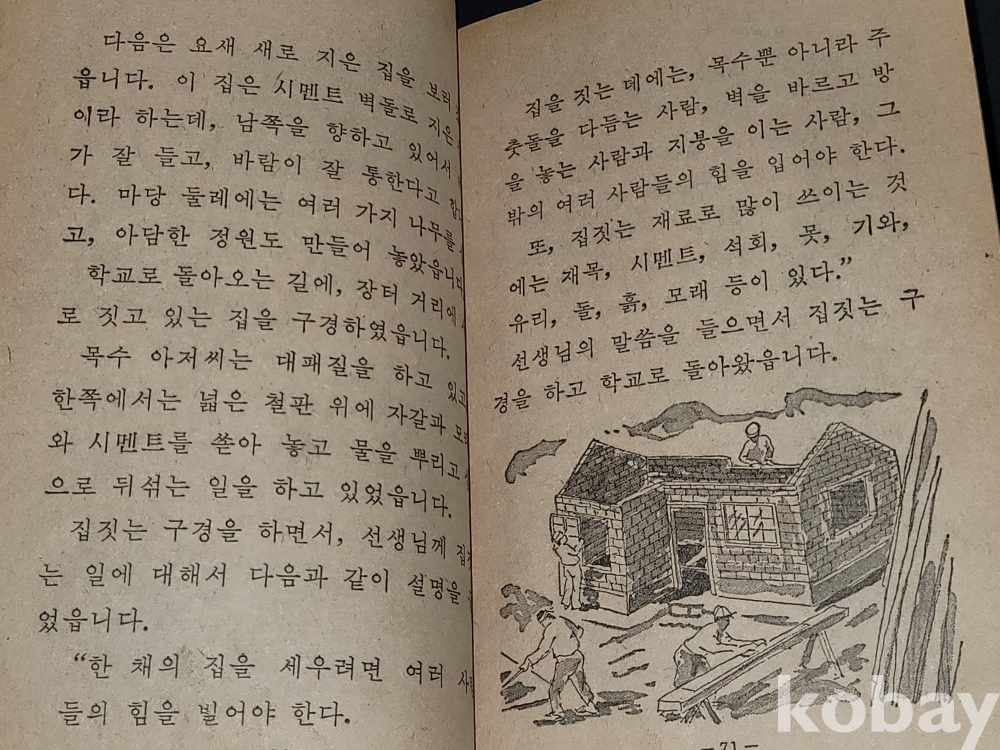 다음은 요새 새로 지은 집을 보러
읍니다. 이 집은 시멘트 벽돌로 지은
이라 하는데, 남쪽을 향하고 있어서
가 잘 들고, 바람이 잘 통한다고 합니
다. 마당 둘레에는 여러 가지 나무를
고, 아담한 정원도 만들어 놓았읍니다
학교로 돌아오는 길에, 장터 거리에
로 짓고 있는 집을 구경하였읍니다.
목수 아저씨는 대패질을 하고 있고
한쪽에서는 넓은 철판 위에 자갈과
와 시멘트를 쏟아 놓고 물을 뿌리고
으로 뒤섞는 일을 하고 있었읍니다.
집짓는 구경을 하면서, 선생님께
는 일에 대해서 다음과 같이 설명을
었읍니다.
“한 채의 집을 세우려면 여러
들의 힘을 빌어야 한다.
집을 짓는 데에는, 목수뿐 아니라 주
춧돌을 다듬는 사람, 벽을 바르고 방
을 놓는 사람과 지붕을 이는 사람, 그
밖의 여러 사람들의 힘을 입어야 한다.
또, 집짓는 재료로 많이 쓰이는 것
에는 재목, 시멘트, 석회, 못, 기와,
유리, 돌, 흙, 모래 등이 있다.”
선생님의 말씀을 들으면서 집짓는 구
경을 하고 학교로 돌아왔읍니다.
— 71 —
kobay